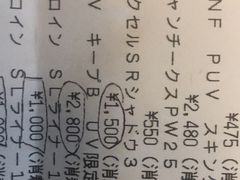 ¥475 (消
NF PUV スキン
¥2,480 (消
ャンチークスPW25
¥550 (消
クセルSRシャドウ3
¥1,500 (消
V キープB UV 限定
¥2,800 (消
ロイン SLライナー1
¥1,000 (消
ロイン SLライナー1